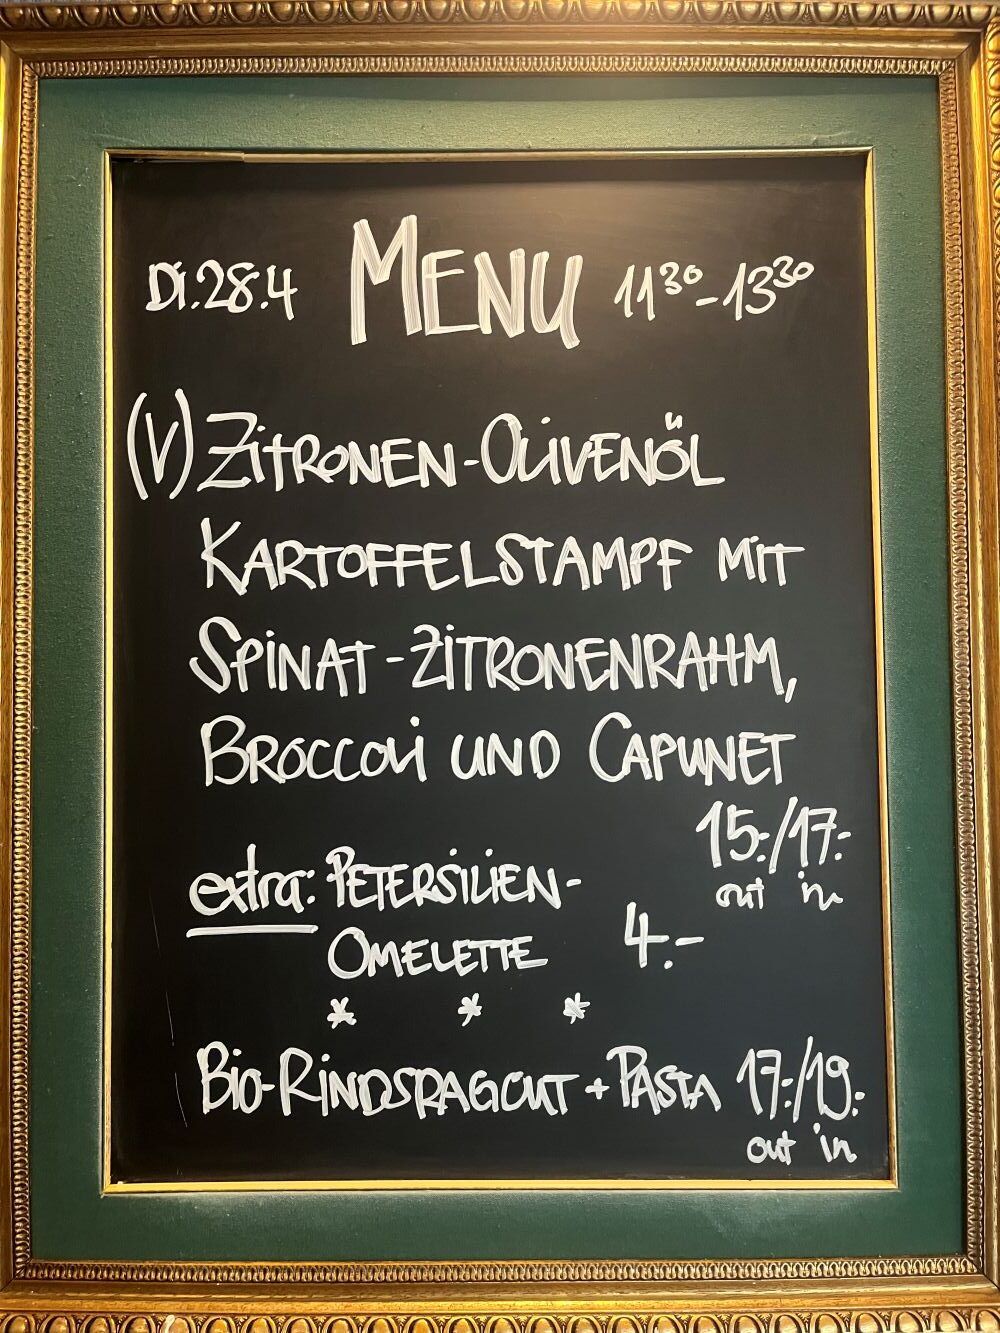 Di. 28.4 MENU 11³⁰-13³⁰
(V) ZITRONEN-OLIVENÖL
KARTOFFELSTAMPF MIT
SPINAT-ZITRONENRAHM,
BROCCOLI UND CAPUNET
15.-/17.-
out in
extra: PETERSILIEN-
OMELETTE 4.-
* * *
BIO-RINDSRAGOUT + PASTA 17.-/19.-
out in